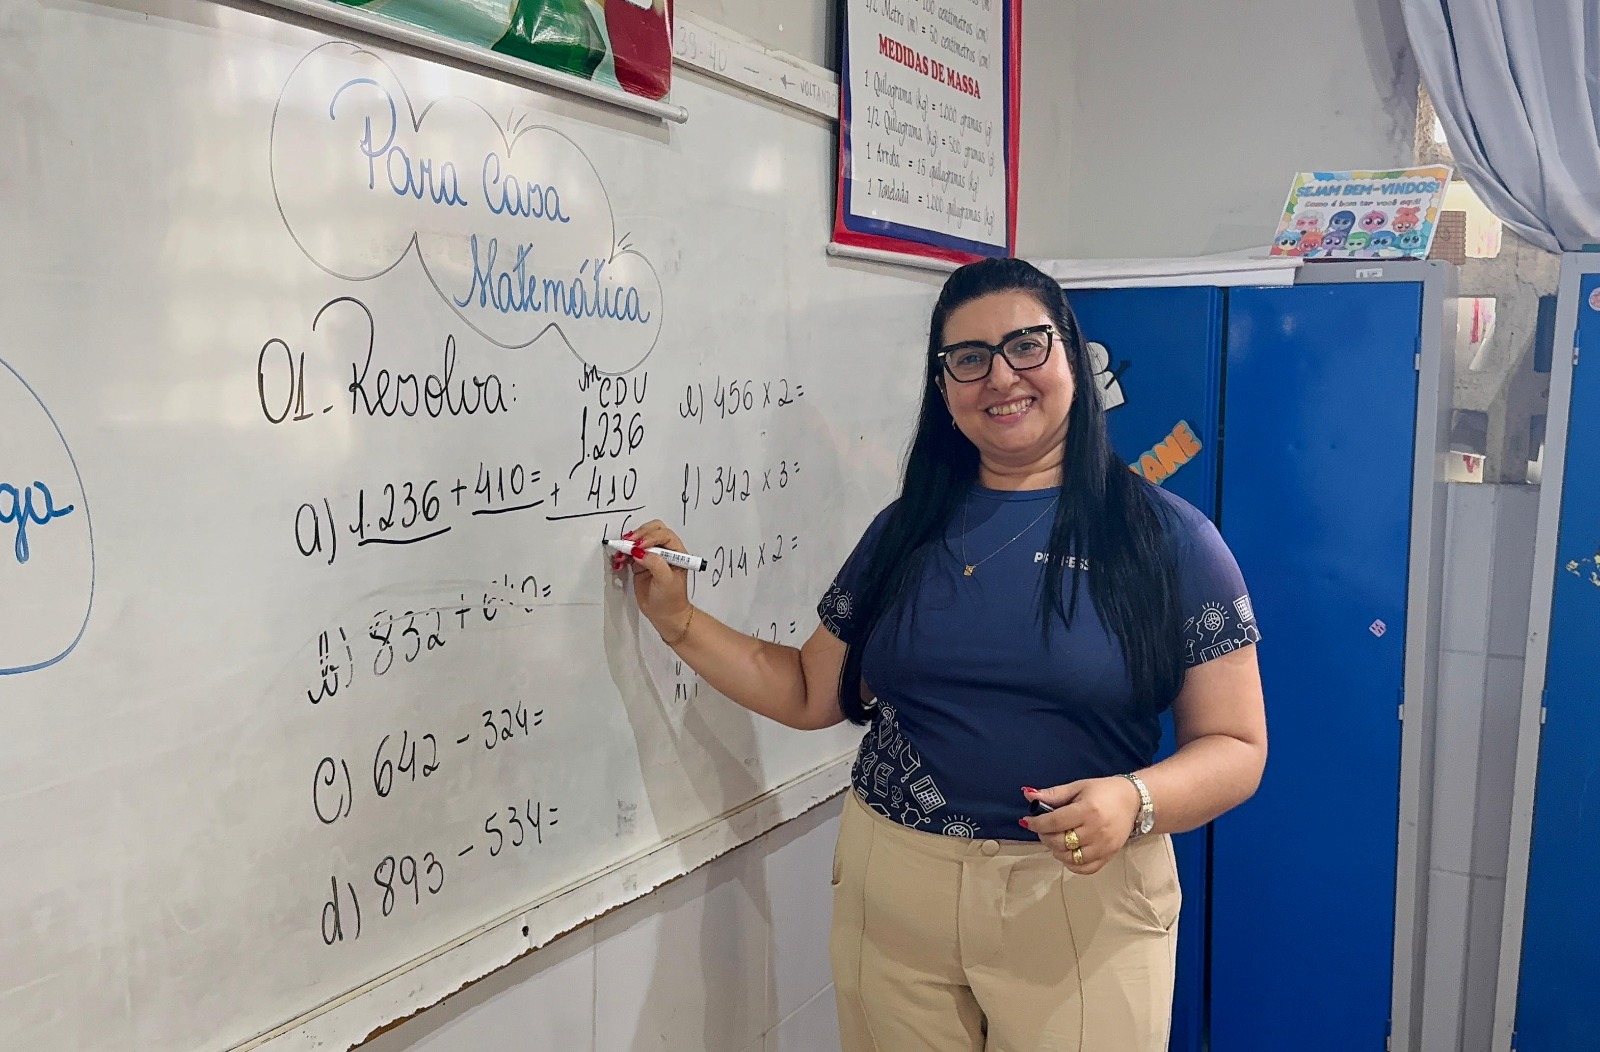 39-40
VOLTANDO
100 centímetros (cm)
1/2 Metro (m) = 50 centímetros (cm)
MEDIDAS DE MASSA
1 Quilograma (kg) = 1.000 gramas (g)
1/2 Quilograma (kg) = 500 gramas (g)
1 Arroba = 15 quilogramas (kg)
1 Tonelada = 1.000 quilogramas (kg)
SEJAM BEM-VINDOS!
Como é bom ter você aqui!
Para Casa
Matemática
01- Resolva:
a) 1.236 + 410 =
832 +
c) 642 - 324 =
d) 893 - 534 =
CDU
1.236
+ 410
6
e) 456 x 2 =
f) 342 x 3 =
214 x 2 =
x 2 =
ga
PROFESS
ANE